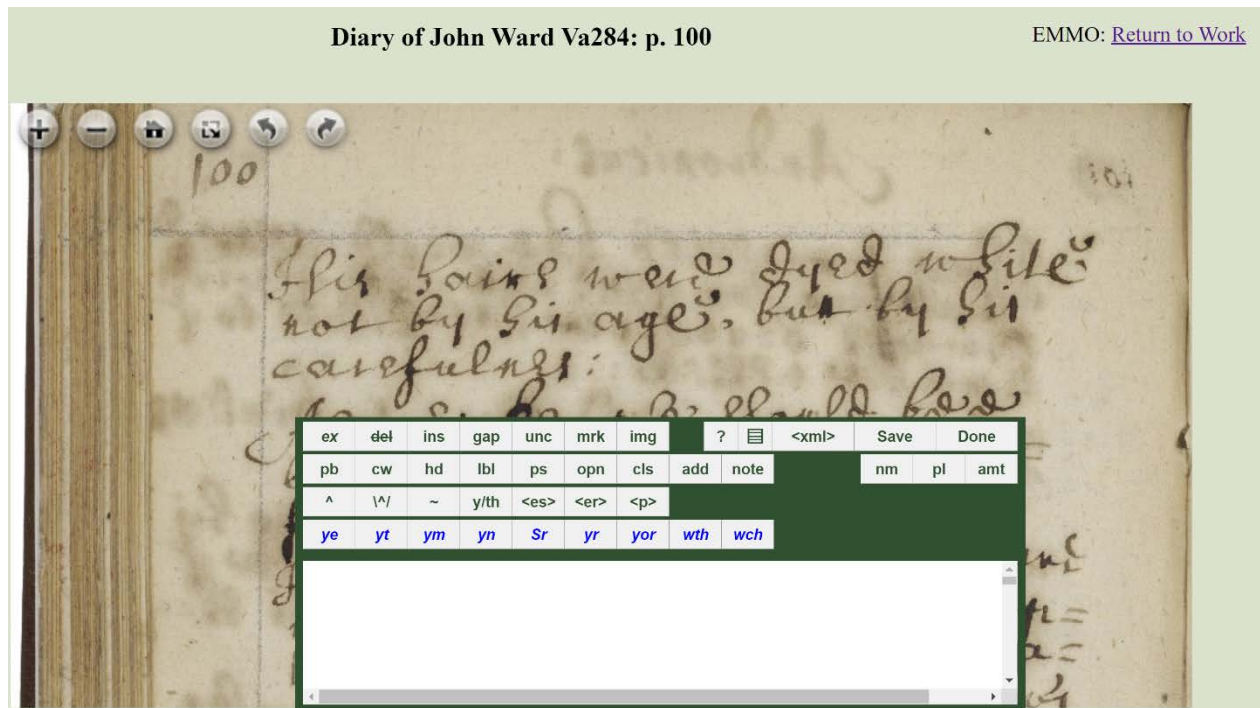 Diary of John Ward Va284: p. 100
EMMO: Return to Work
100
101
His haires were dyed white
not by his age, but by his
carefulnes:
should bee
ex del ins gap unc mrk img ? <xml> Save Done
pb cw hd lbl ps opn cls add note nm pl amt
^ \^/ ~ y/th <es> <er> <p>
ye yt ym yn Sr yr yor wth wch